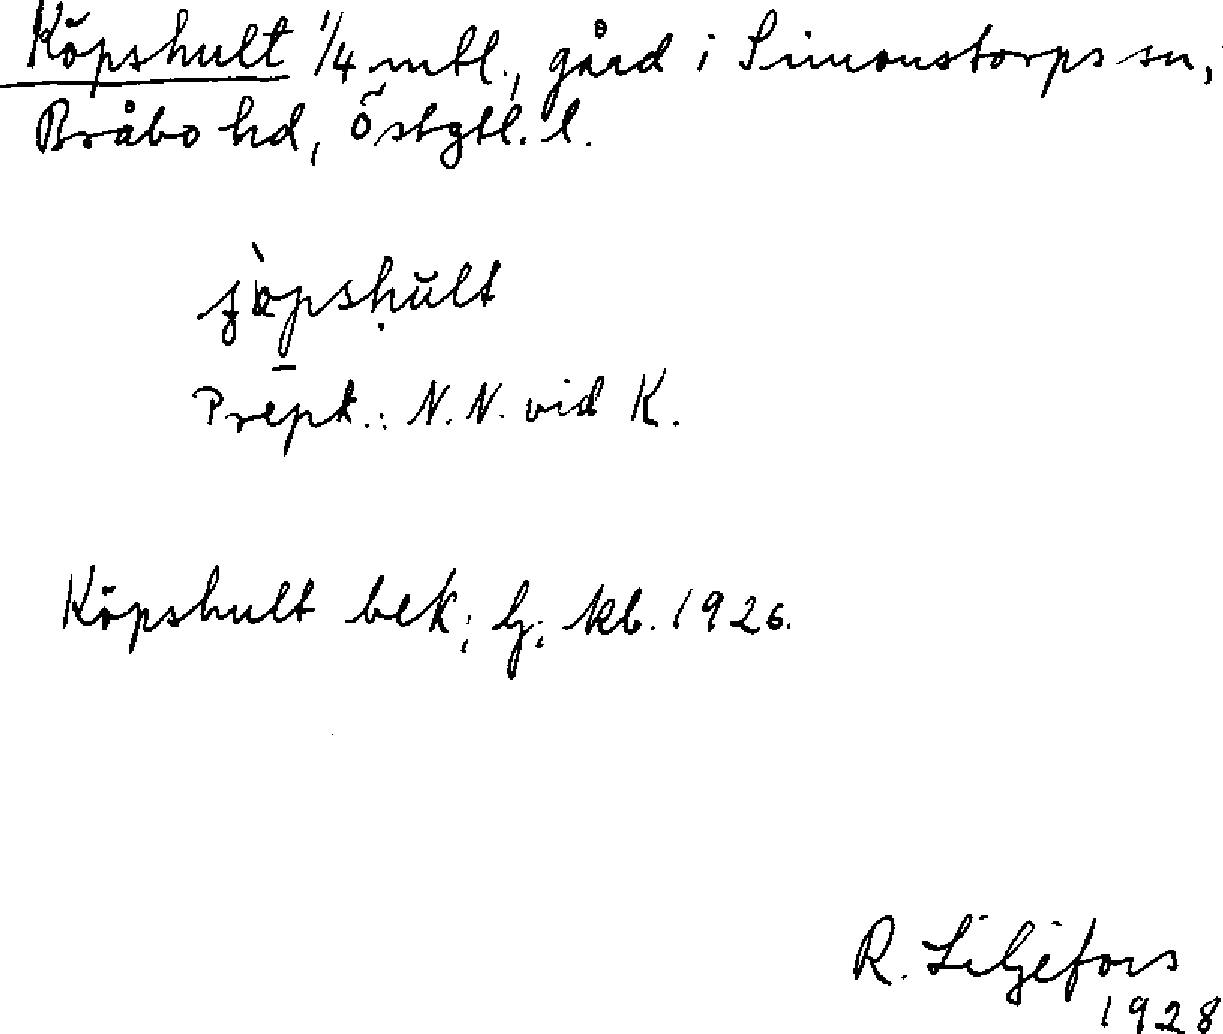 Köpshult 1/4 mtl., gård i Simonstorps sn,
Bråbo hd, Östgtl. l.
Prepk.: N.N. vid K.
Köpshult bek; lj; kb. 1926.
R. Liljefors
1928